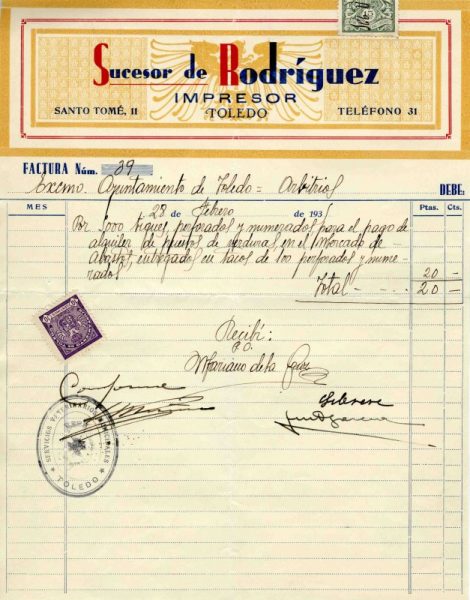 Sucesor de Rodríguez
IMPRESOR
TOLEDO
SANTO TOMÉ, 11
TELÉFONO 31
FACTURA Núm. 39
Excmo. Ayuntamiento de Toledo = Arbitrios
DEBE:
MES
28 de Febrero de 193
Ptas. Cts.
Por 5000 tiques, perforados y numerados para el pago de
alquiler de puestos de verduras, en el Mercado de
Abastos, entregados en tacos de 100 perforados y nume-
rados 20 -
Total - - - - 20 -
Recibí:
P.O.
Mariano de la Cruz
Conforme
SERVICIOS VETERINARIOS MUNICIPALES
TOLEDO